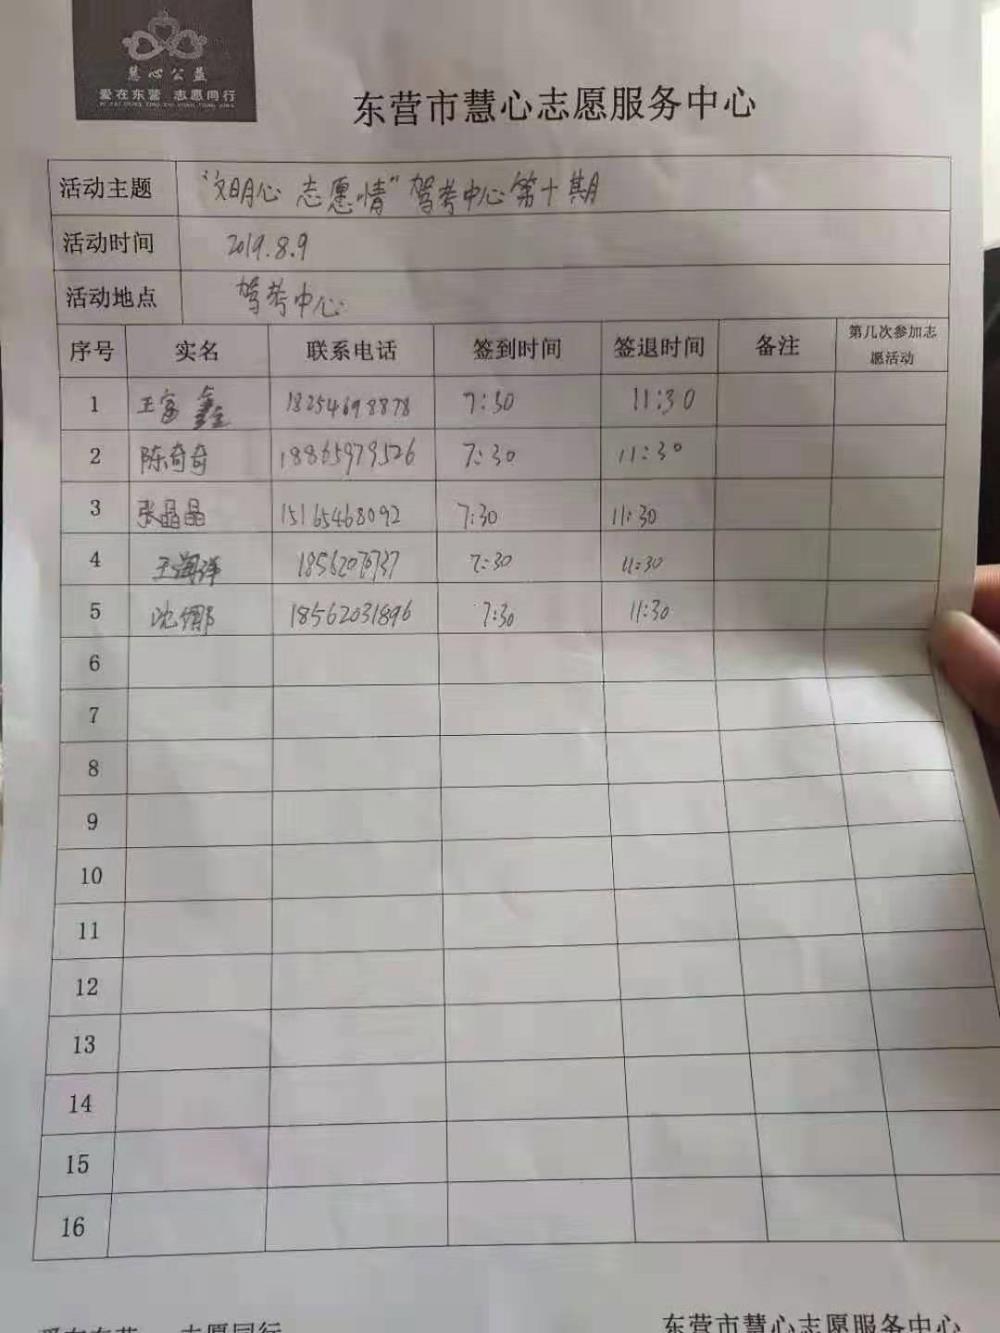 慧心公益
爱在东营 志愿同行
东营市慧心志愿服务中心
活动主题 “文明心 志愿情”驾考中心第十期
活动时间 2019.8.9
活动地点 驾考中心
序号 实名 联系电话 签到时间 签退时间 备注 第几次参加志愿活动
1 王富鑫 18254698878 7:30 11:30
2 陈奇奇 18865979526 7:30 11:30
3 张晶晶 15165468092 7:30 11:30
4 王海洋 7:30 11:30
5 沈娜 18562031896 7:30 11:30
6
7
8
9
10
11
12
13
14
15
16
爱在东营 志愿同行 东营市慧心志愿服务中心